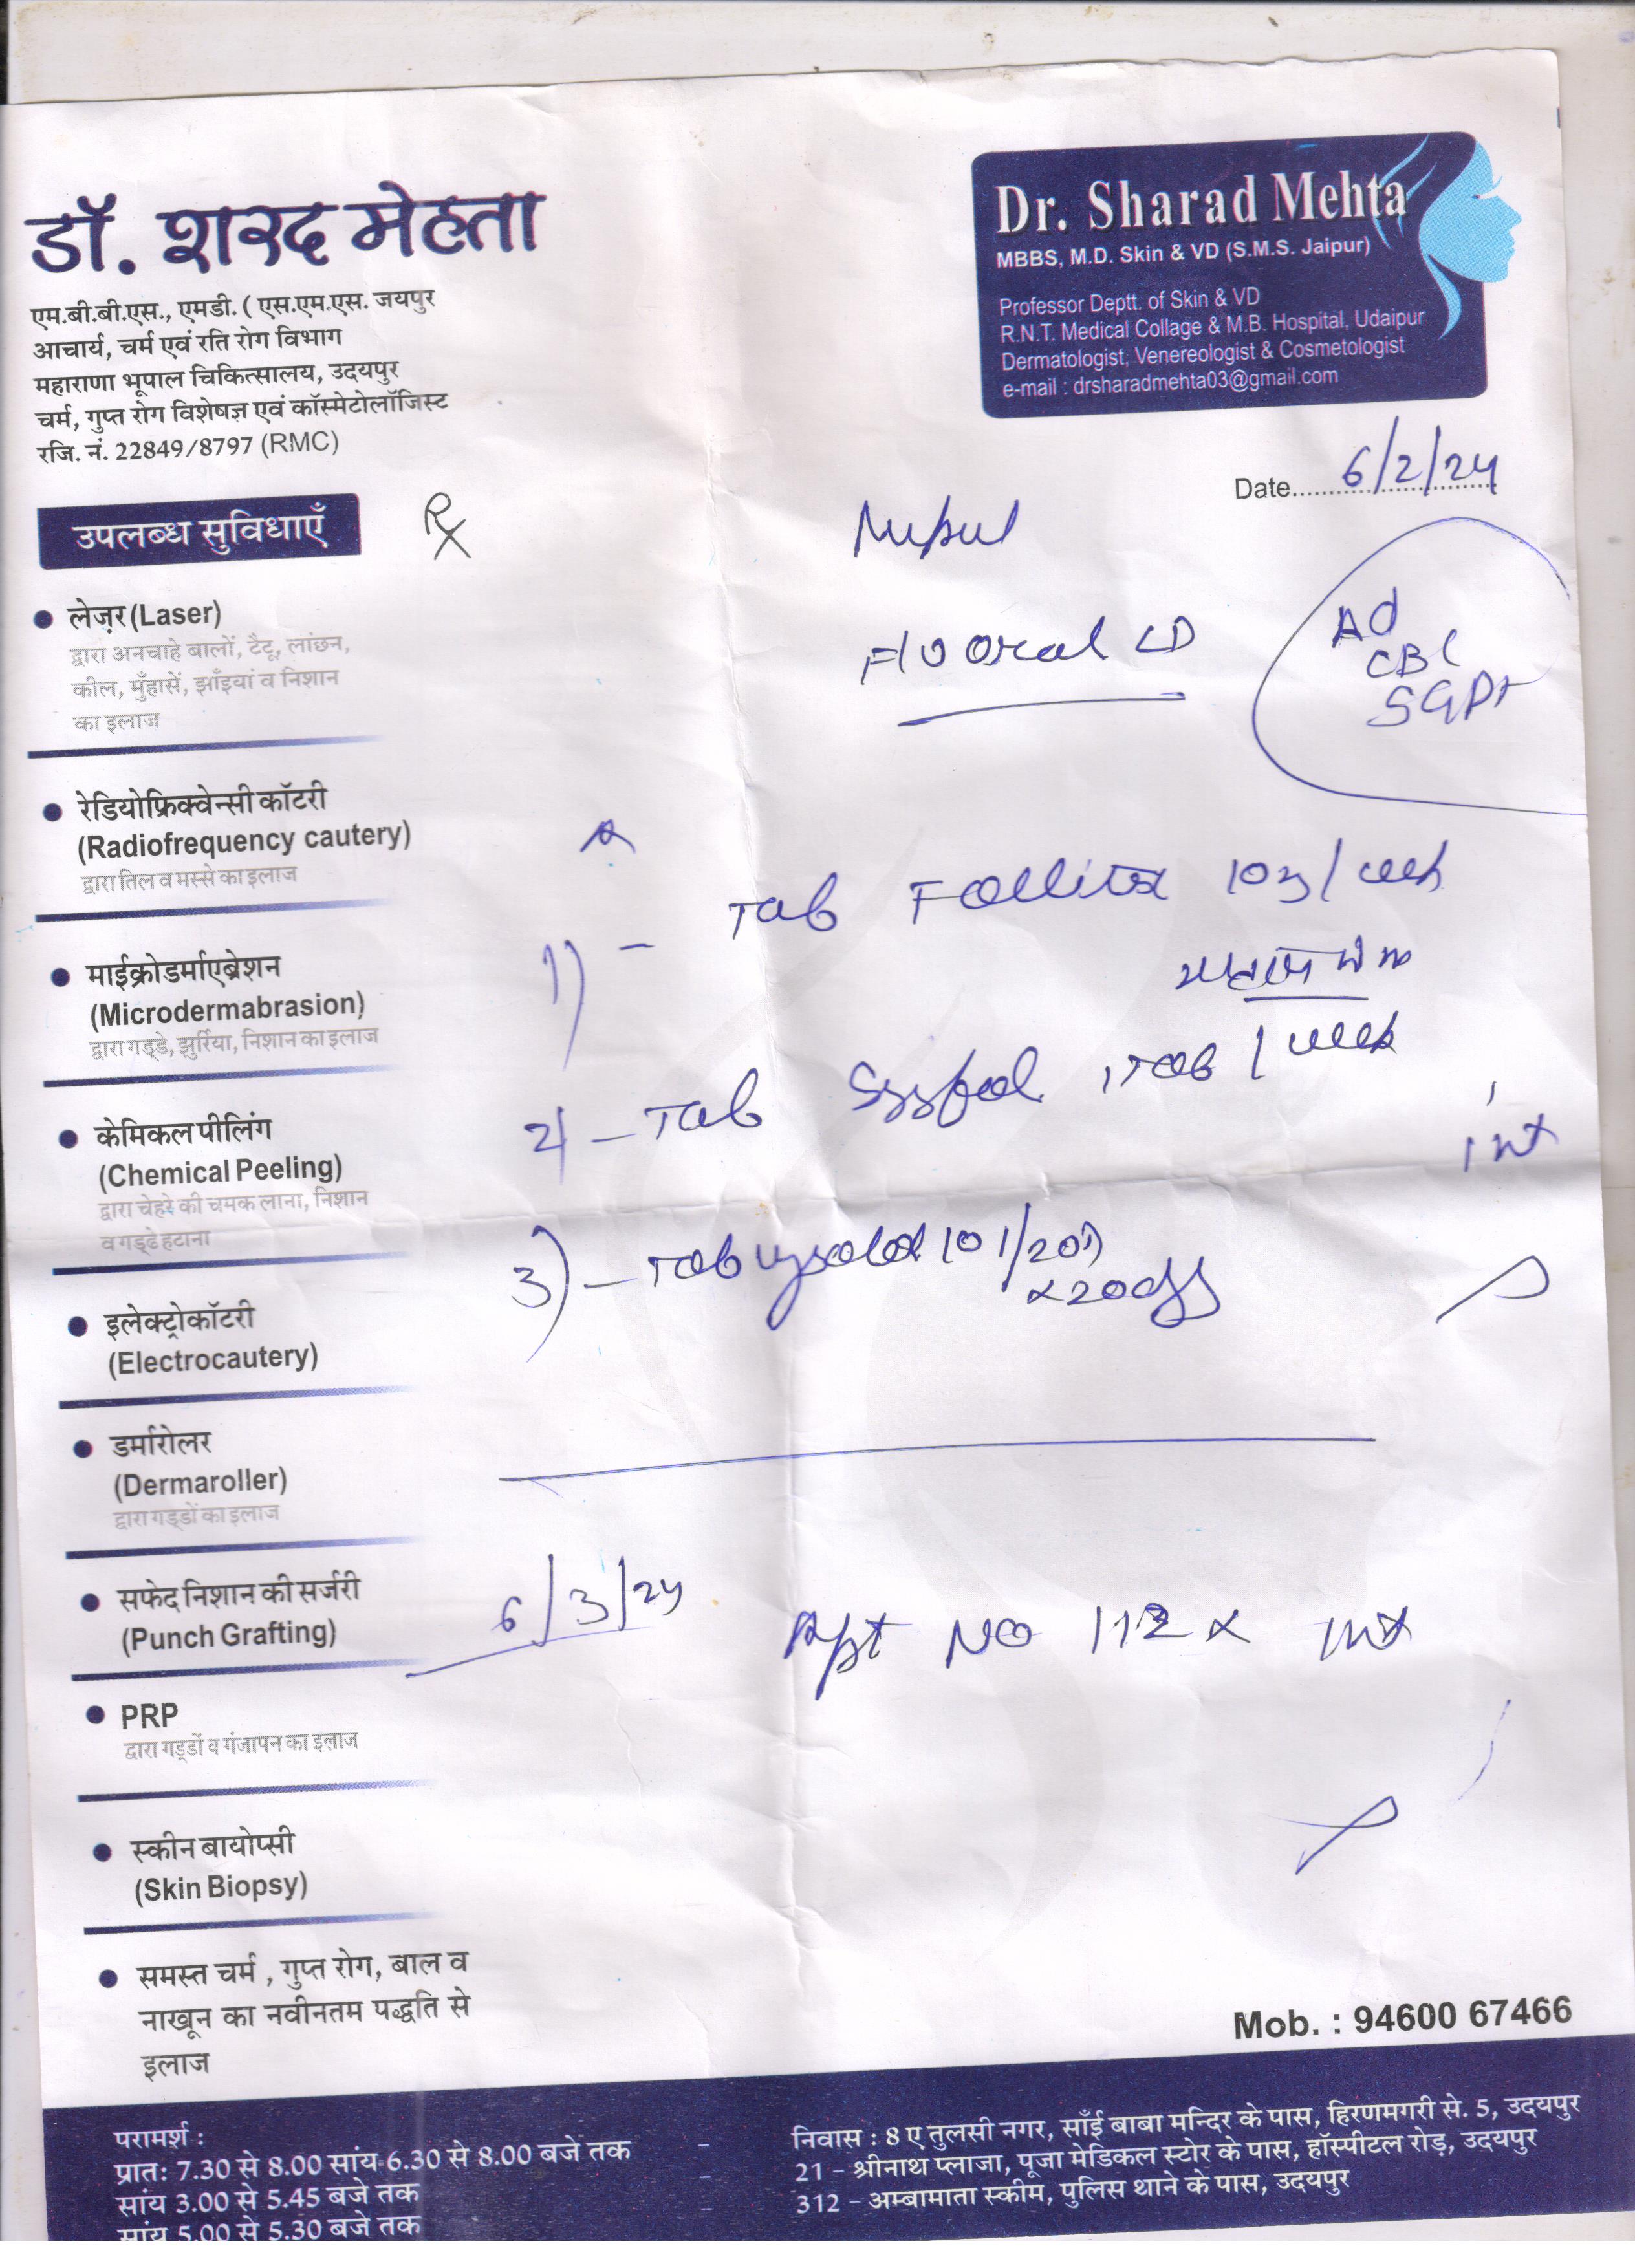 डॉ. शरद मेहता
एम.बी.बी.एस., एमडी. ( एस.एम.एस. जयपुर
आचार्य, चर्म एवं रति रोग विभाग
महाराणा भूपाल चिकित्सालय, उदयपुर
चर्म, गुप्त रोग विशेषज्ञ एवं कॉस्मेटोलॉजिस्ट
रजि. नं. 22849/8797 (RMC)
Dr. Sharad Mehta
MBBS, M.D. Skin & VD (S.M.S. Jaipur)
Professor Deptt. of Skin & VD
R.N.T. Medical Collage & M.B. Hospital, Udaipur
Dermatologist, Venereologist & Cosmetologist
e-mail : drsharadmehta03@gmail.com
Date 6/2/24
उपलब्ध सुविधाएँ
Rx
लेज़र (Laser)
द्वारा अनचाहे बालों, टैटू, लांछन,
कील, मुँहासें, झाँइयां व निशान
का इलाज
रेडियोफ्रिक्वेन्सी कॉटरी
(Radiofrequency cautery)
द्वारा तिल व मस्से का इलाज
माईक्रोडर्माएब्रेशन
(Microdermabrasion)
द्वारा गड्डे, झुर्रिया, निशान का इलाज
केमिकल पीलिंग
(Chemical Peeling)
द्वारा चेहरे की चमक लाना, निशान
व गड्ढे हटाना
इलेक्ट्रोकॉटरी
(Electrocautery)
डर्मारोलर
(Dermaroller)
द्वारा गड्डों का इलाज
सफेद निशान की सर्जरी
(Punch Grafting)
PRP
द्वारा गड्डों व गंजापन का इलाज
स्कीन बायोप्सी
(Skin Biopsy)
समस्त चर्म , गुप्त रोग, बाल व
नाखून का नवीनतम पद्धति से
इलाज
F/U Oral LD
Ad
CBC
SGPT
1) - Tab Follitrax 10 /week
2) - Tab 1 Tab / week
3) - Tab 10 1/20
6/3/24 Rpt NO 112 x
Mob. : 94600 67466
परामर्श :
प्रातः 7.30 से 8.00 सांय 6.30 से 8.00 बजे तक
सांय 3.00 से 5.45 बजे तक
सांय 5.00 से 5.30 बजे तक
निवास : 8 ए तुलसी नगर, साँई बाबा मन्दिर के पास, हिरणमगरी से. 5, उदयपुर
21 - श्रीनाथ प्लाजा, पूजा मेडिकल स्टोर के पास, हॉस्पीटल रोड़, उदयपुर
312 - अम्बामाता स्कीम, पुलिस थाने के पास, उदयपुर